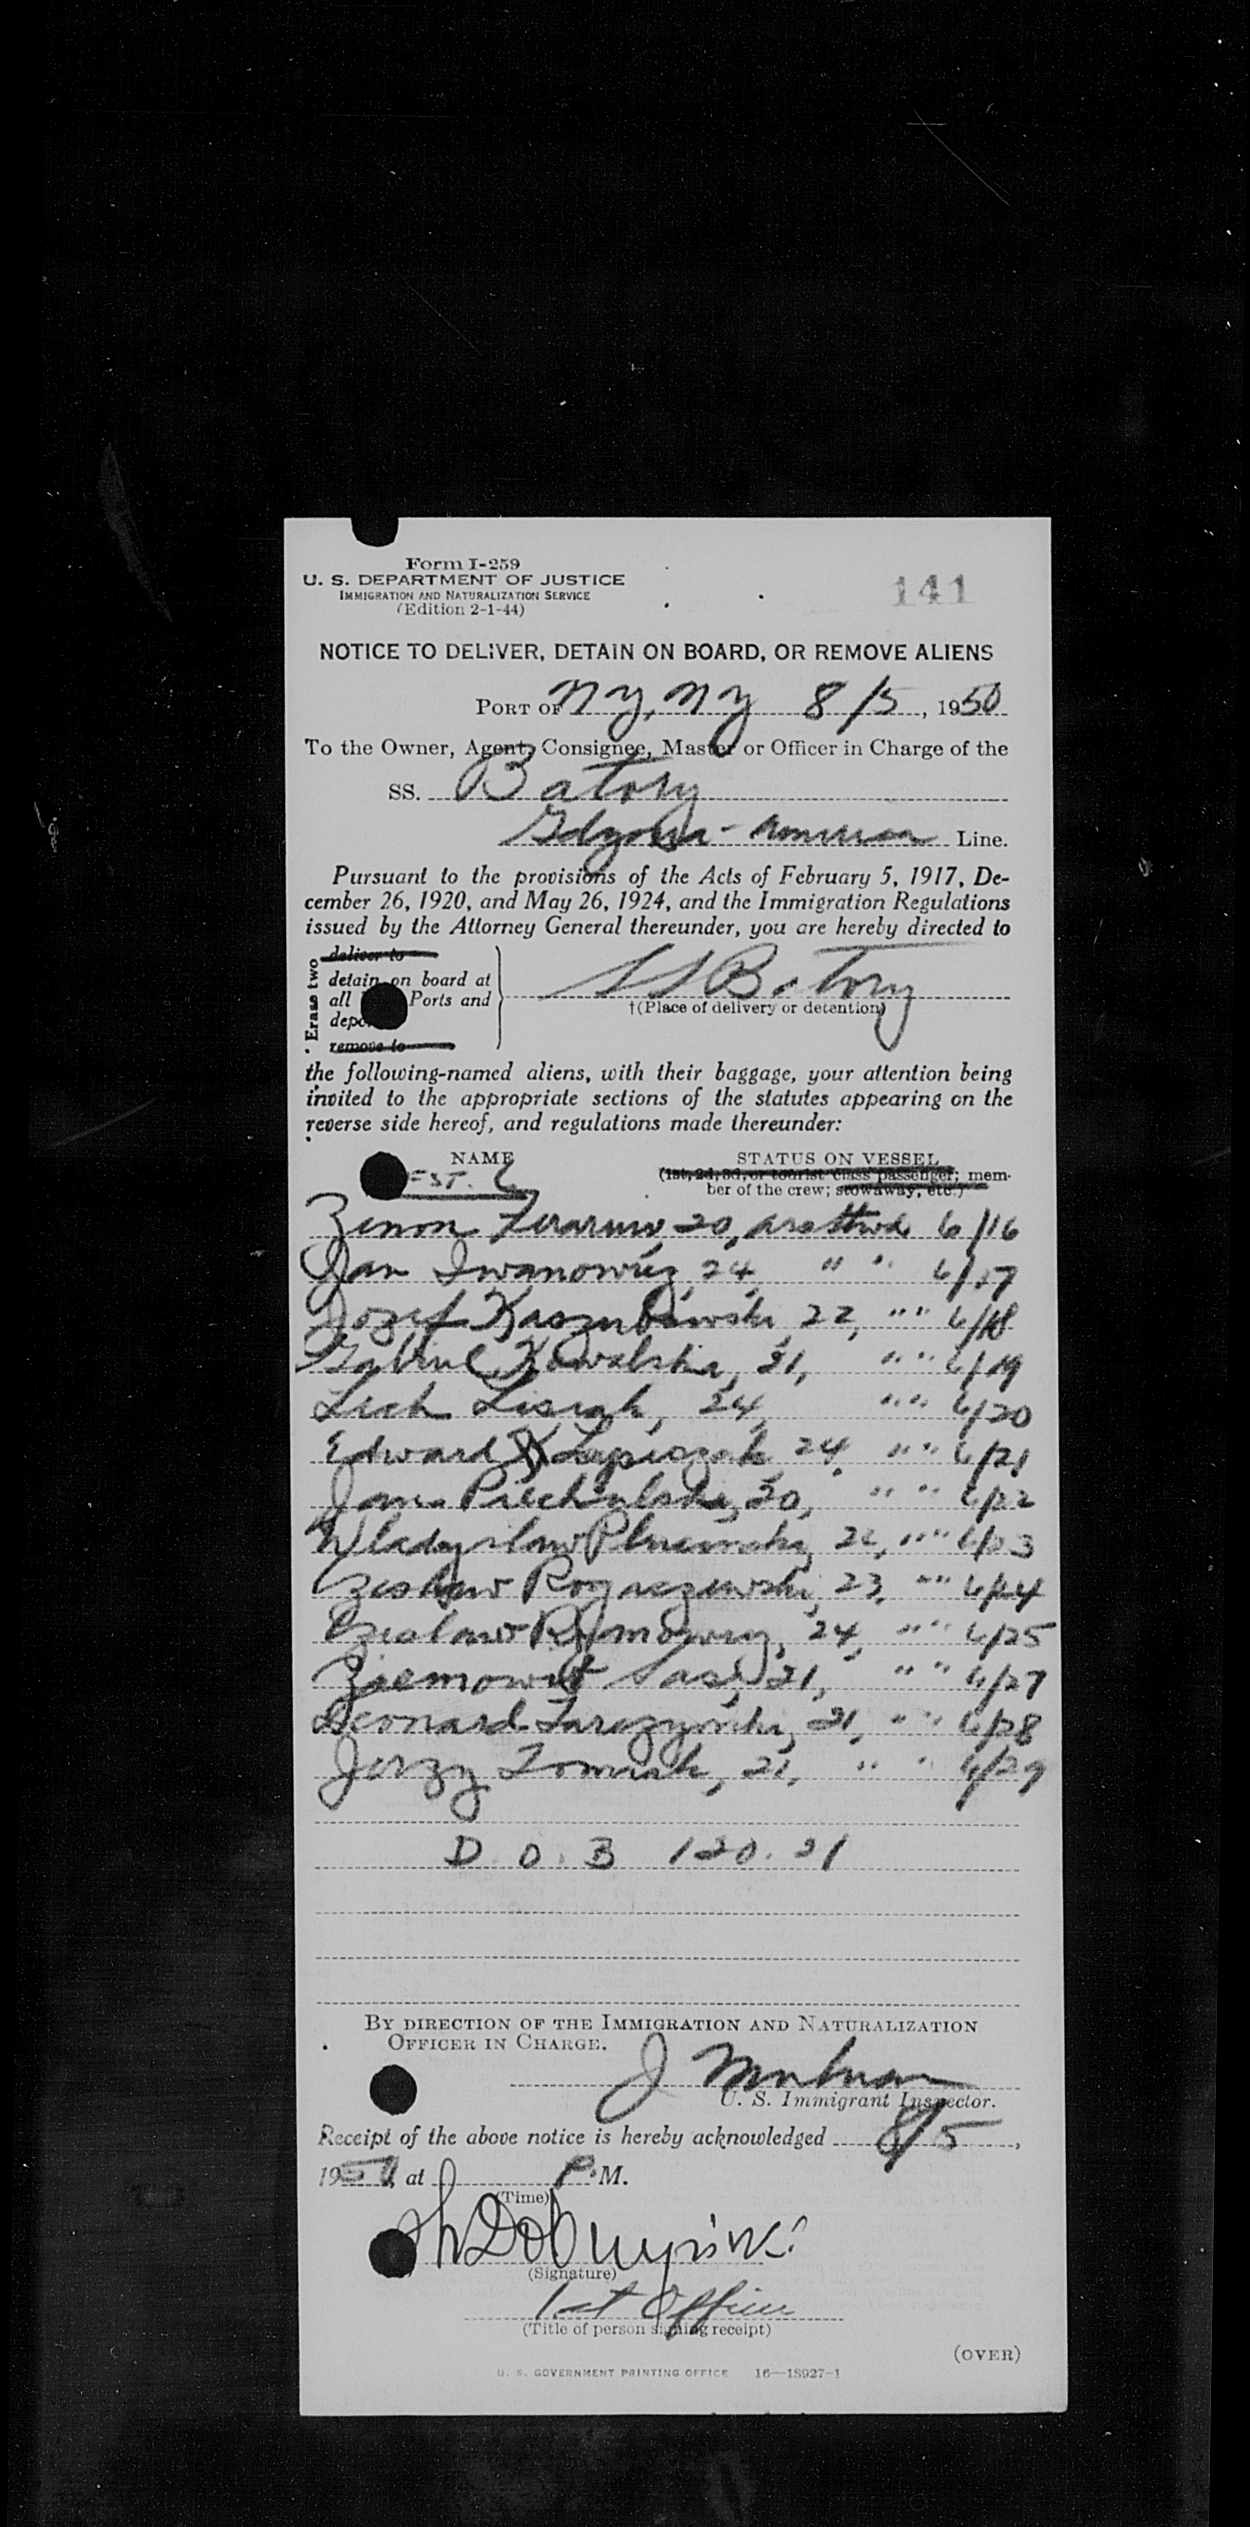 Form I-259
U. S. DEPARTMENT OF JUSTICE
IMMIGRATION AND NATURALIZATION SERVICE
(Edition 2-1-44)
141
NOTICE TO DELIVER, DETAIN ON BOARD, OR REMOVE ALIENS
PORT OF NY, NY 8/5, 1950
To the Owner, Agent, Consignee, Master or Officer in Charge of the
SS. Batory
Gdynia-American Line.
Pursuant to the provisions of the Acts of February 5, 1917, De-
cember 26, 1920, and May 26, 1924, and the Immigration Regulations
issued by the Attorney General thereunder, you are hereby directed to
Erase two
deliver to
detain on board at
all Ports and
remove to
SS Batory
†(Place of delivery or detention)
the following-named aliens, with their baggage, your attention being
invited to the appropriate sections of the statutes appearing on the
reverse side hereof, and regulations made thereunder:
NAME
STATUS ON VESSEL
(1st, 2d, 3d, or tourist class passenger; mem-
ber of the crew; stowaway, etc.)
Zenon 20, 6/16
Jan Iwanowicz, 24, " " 6/17
Jozef 22, " " 6/18
Kowalski, 21, " " 6/19
Lech Lisiak, 24, " " 6/20
Edward 24, " " 6/21
Jan 20, " " 6/22
Wladyslaw " " 6/23
Czeslaw 23, " " 6/24
Czeslaw 24, " " 6/25
Ziemowit 21, " " 6/27
Leonard 21, " " 6/28
Jerzy Tomiak, 21, " " 6/29
D. O. B 120.21
BY DIRECTION OF THE IMMIGRATION AND NATURALIZATION
OFFICER IN CHARGE.
J
U. S. Immigrant Inspector.
Receipt of the above notice is hereby acknowledged 8/5,
1950, at P. M.
(Time)
(Signature)
1st Officer
(Title of person signing receipt)
(OVER)
U. S. GOVERNMENT PRINTING OFFICE 16—18927-1